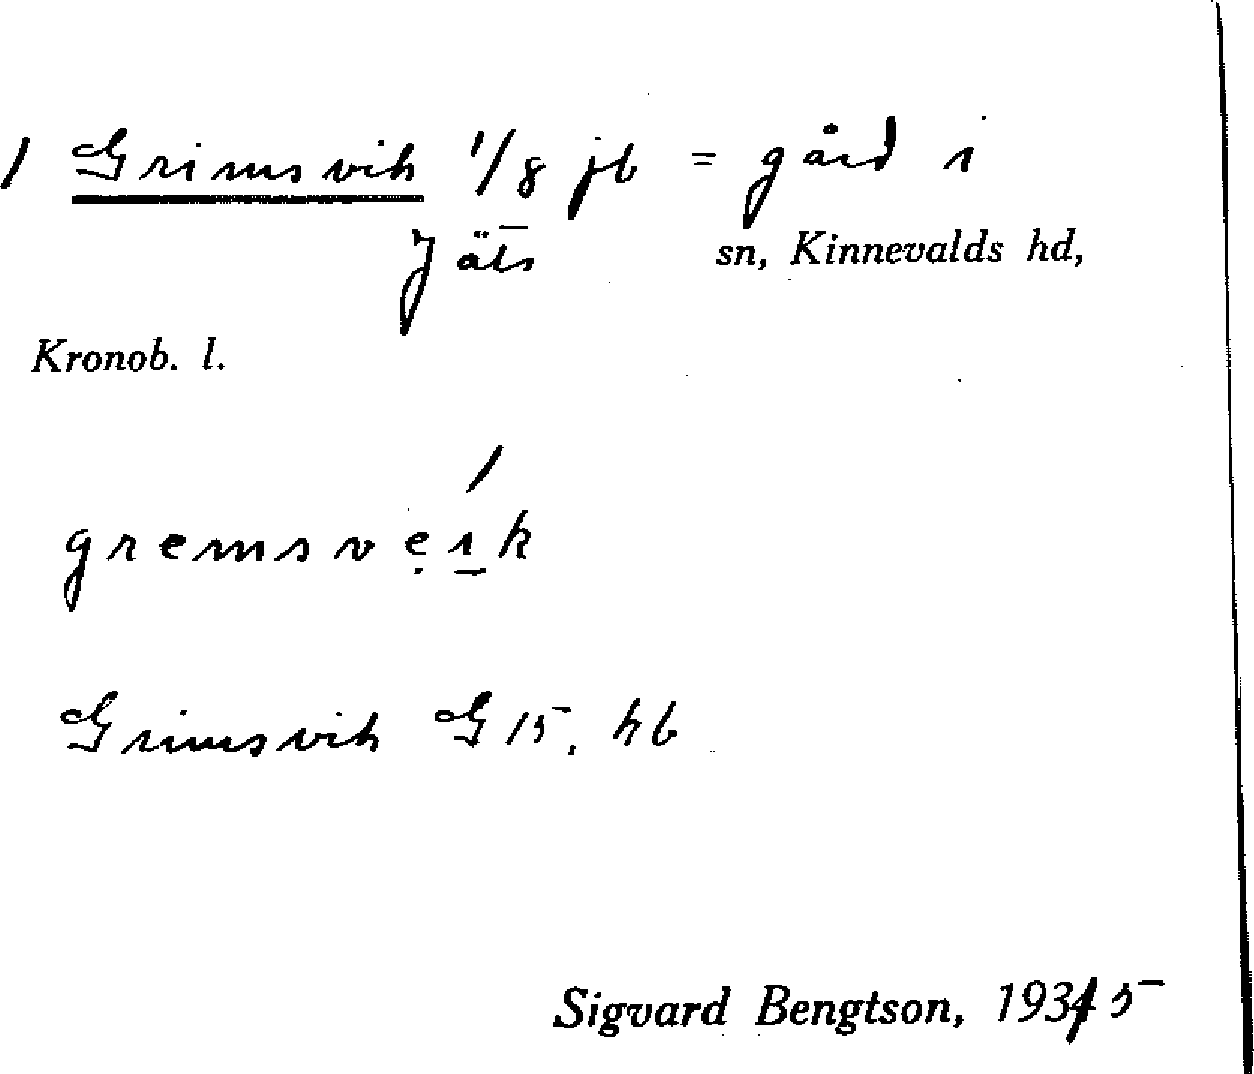 / Grimsvik 1/8 jb = gård i
Jäts sn, Kinnevalds hd,
Kronob. l.
/
gremsvẹi̱k
Grimsvik G 15. hb
Sigvard Bengtson, 1935